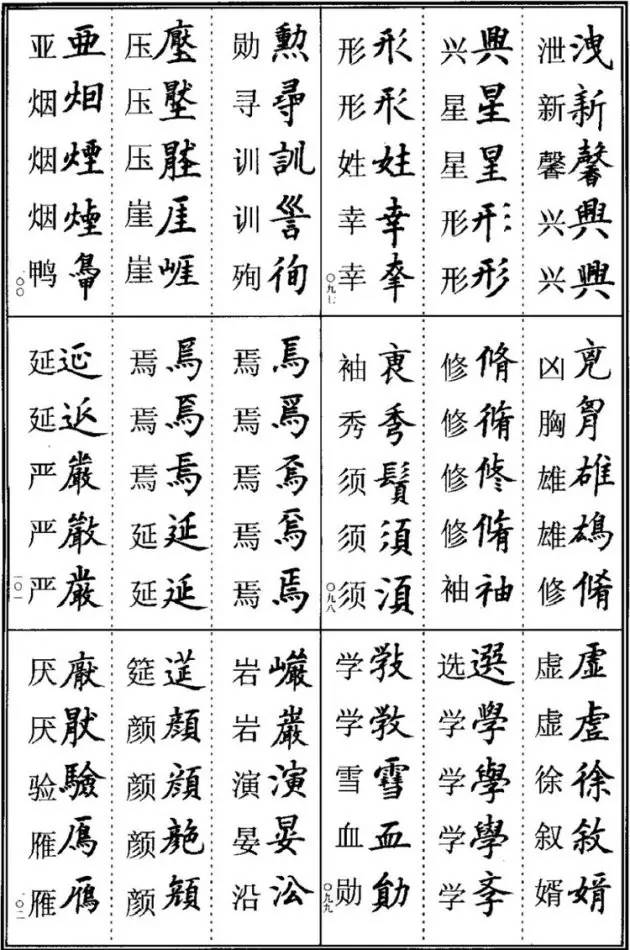 泄 洩
新 新
馨 馨
兴 興
兴 興
兴 興
星 星
星 星
形 形
形 形
形 形
形 形
姓 姓
幸 幸
幸
〇九七
凶 兇
胸 胷
雄 雄
雄
修 脩
修 脩
修 脩
修 修
修 脩
袖 袖
袖
秀 秀
须 鬚
须 須
须 湏
〇九八
虚 虛
虚 虗
徐 徐
叙 敘
婿 婿
选 選
学 學
学 學
学 學
学 斈
学
学 教
雪 雪
血 血
勋 勛
〇九九
勋 勳
寻 尋
训 訓
训
殉 徇
压 壓
压
压
崖 崖
崖 崕
亚 亞
烟 烟
烟 煙
烟 煙
鸭
一〇〇
焉 焉
焉 焉
焉 焉
焉 焉
焉 焉
焉 焉
焉 焉
焉 焉
延 延
延 延
延 延
延
严 嚴
严
严 嚴
一〇一
岩 巗
岩 巖
演 演
晏 晏
沿 㳂
筵 筵
颜 顔
颜 顔
颜
颜
厌 厭
厌 猒
验 驗
雁 鴈
雁 鴈
一〇二